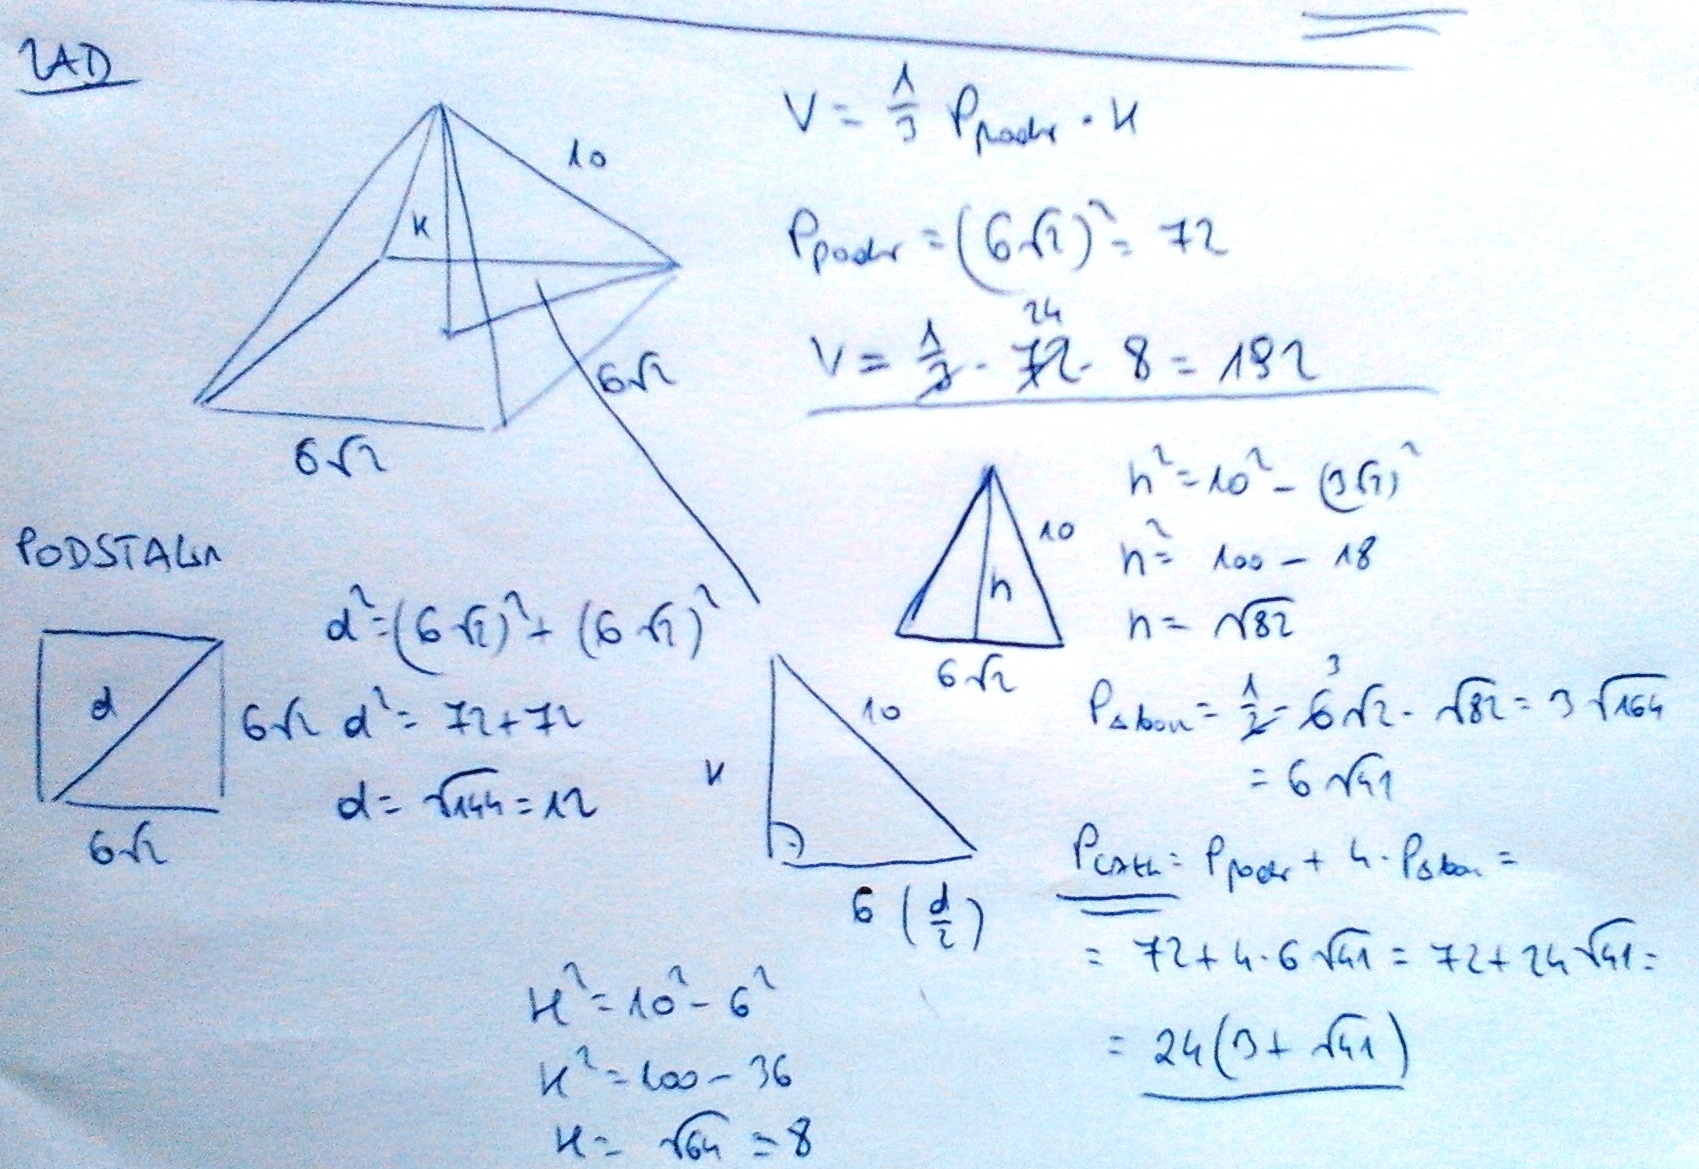 ZAD
10
H
6√2
6√2
V = 1/3 Ppodst · H
Ppodst = (6√2)² = 72
24
V = 1/3 · 72 · 8 = 192
PODSTAWA
d
6√2
6√2
d² = (6√2)² + (6√2)²
d² = 72 + 72
d = √144 = 12
H
10
6 (d/2)
H² = 10² - 6²
H² = 100 - 36
H = √64 = 8
10
h
6√2
h² = 10² - (3√2)²
h² = 100 - 18
h = √82
3
PΔbocz = 1/2 · 6√2 · √82 = 3√164
= 6√41
Pcałk = Ppodst + 4 · PΔbocz =
= 72 + 4 · 6√41 = 72 + 24√41 =
= 24(3 + √41)